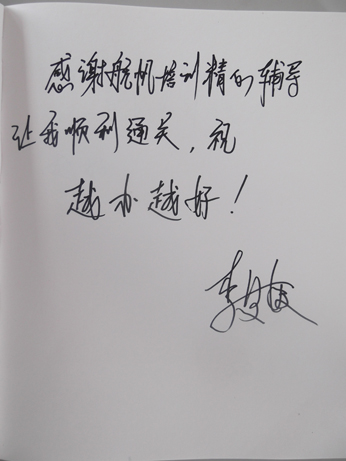 感谢航帆培训精的辅导
让我顺利通关，祝
越办越好！